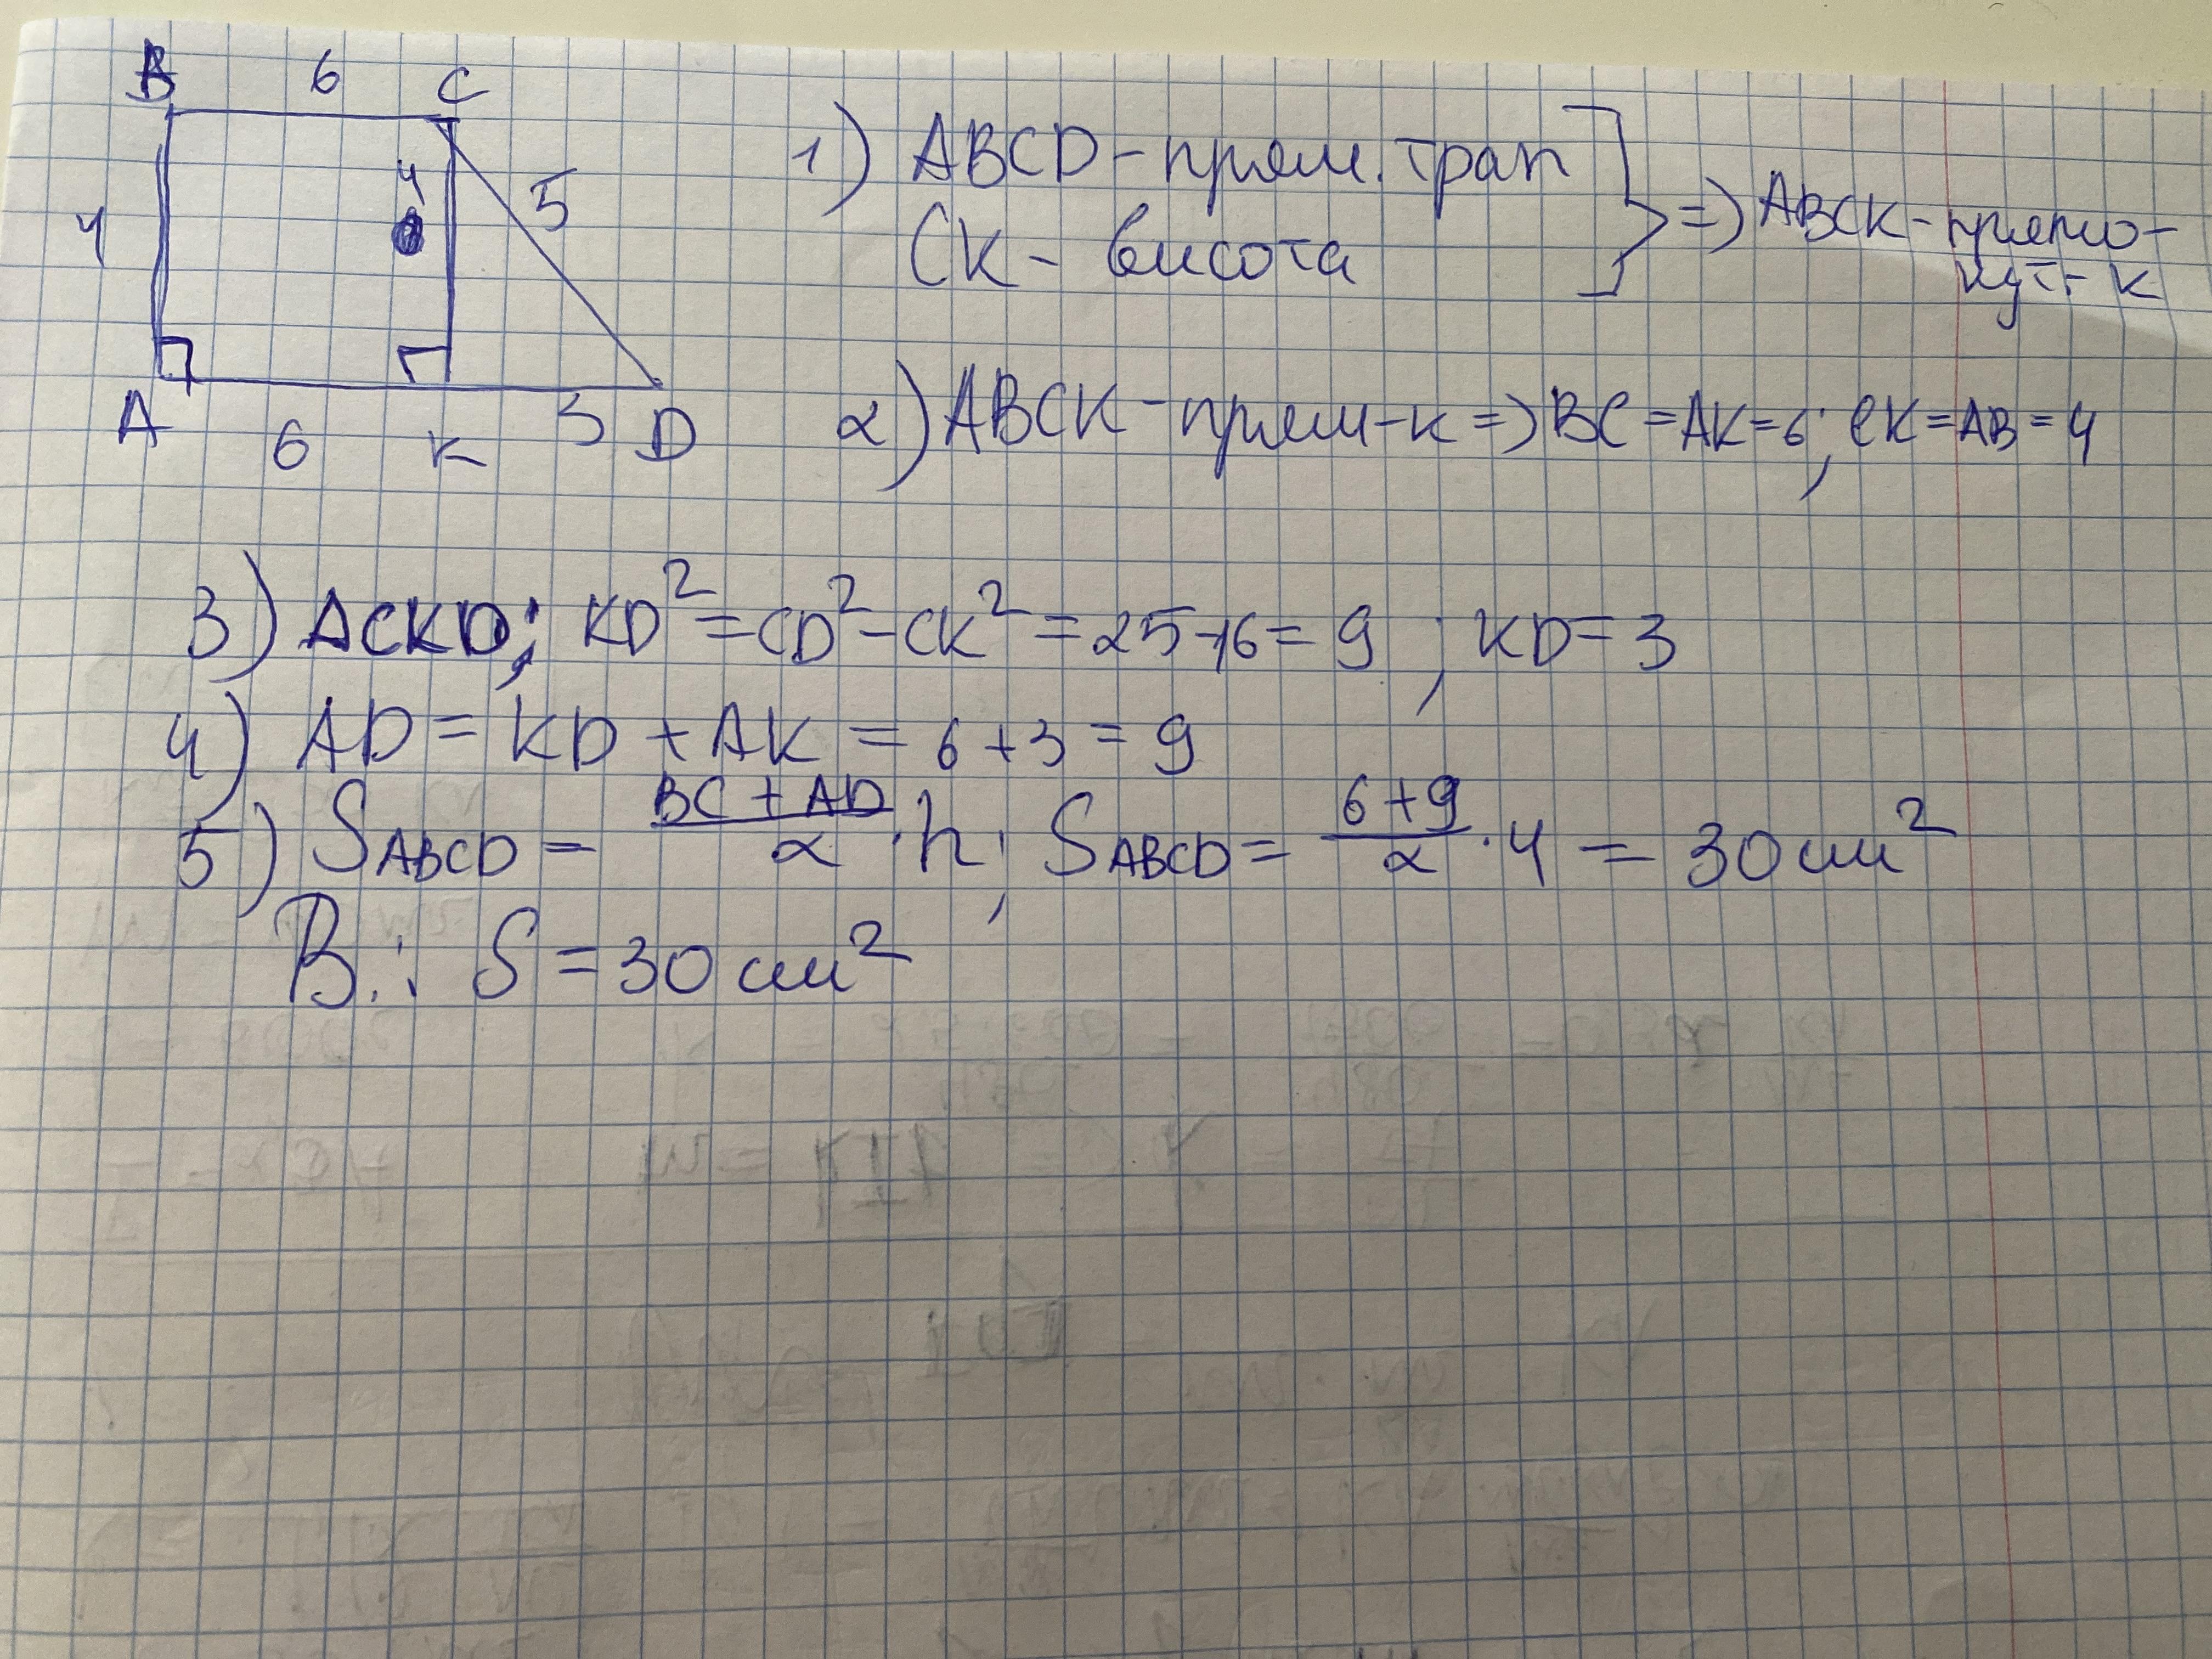 B 6 C
4 4 5
A 6 K 3 D
1) ABCD - прям. трап
CK - висота
=> ABCK - прямо-
кут-к
2) ABCK - прям-к => BC = AK = 6; CK = AB = 4
3) ΔCKD; KD² = CD² - CK² = 25 - 16 = 9; KD = 3
4) AD = KD + AK = 6 + 3 = 9
5) S ABCD = (BC + AD)/2 · h; S ABCD = (6 + 9)/2 · 4 = 30 см²
В.: S = 30 см²